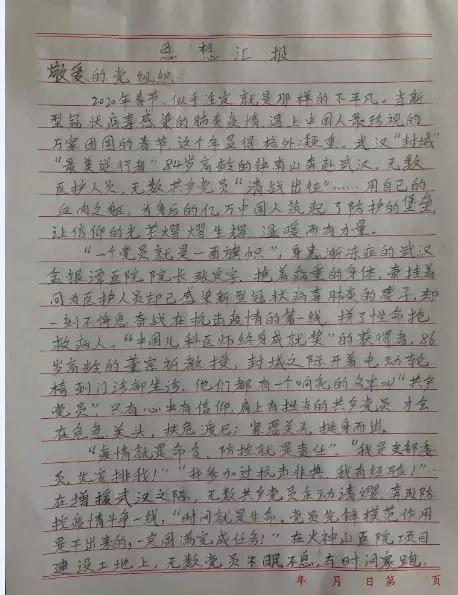 思想汇报
敬爱的党组织：
2020年春节，似乎注定就是那样的不平凡。当新
型冠状病毒感染的肺炎疫情遇上中国人最珍视的
万家团圆的春节，这个年显得格外凝重。武汉“封城”
“最美逆行者”84岁高龄的钟南山奔赴武汉，无数
医护人员，无数共产党员“请战出征”……用自己的
血肉之躯，为身后的亿万中国人筑起了防护的堡垒，
让信仰的光芒熠熠生辉，温暖而有力量。
“一个党员就是一面旗帜”，身患渐冻症的武汉
金银潭医院院长张定宇，拖着病重的身体，牵挂着
同为医护人员却已感染新型冠状病毒肺炎的妻子，却
一刻不停息奋战在抗击疫情的第一线，拼了性命抢
救病人。“中国儿科医师终身成就奖”的获得者，86
岁高龄的董宗祈教授，封城之际开着电动轮
椅到门诊部坐诊。他们都有一个响亮的名字叫“共产
党员”只有心中有信仰，肩上有担当的共产党员，才会
在危急关头，扶危渡厄；紧要关头，挺身而出。
“疫情就是命令，防控就是责任”“我是支部委
员，先安排我！”“我参加过抗击非典，我有经验！”
在增援武汉之际，无数共产党员主动请缨，奔赴防
控疫情斗争一线，“时间就是生命。党员先锋模范作用
是干出来的，一定圆满完成任务！”在火神山医院项目
建设工地上，无数党员不眠不息，与时间赛跑，
年 月 日第 页